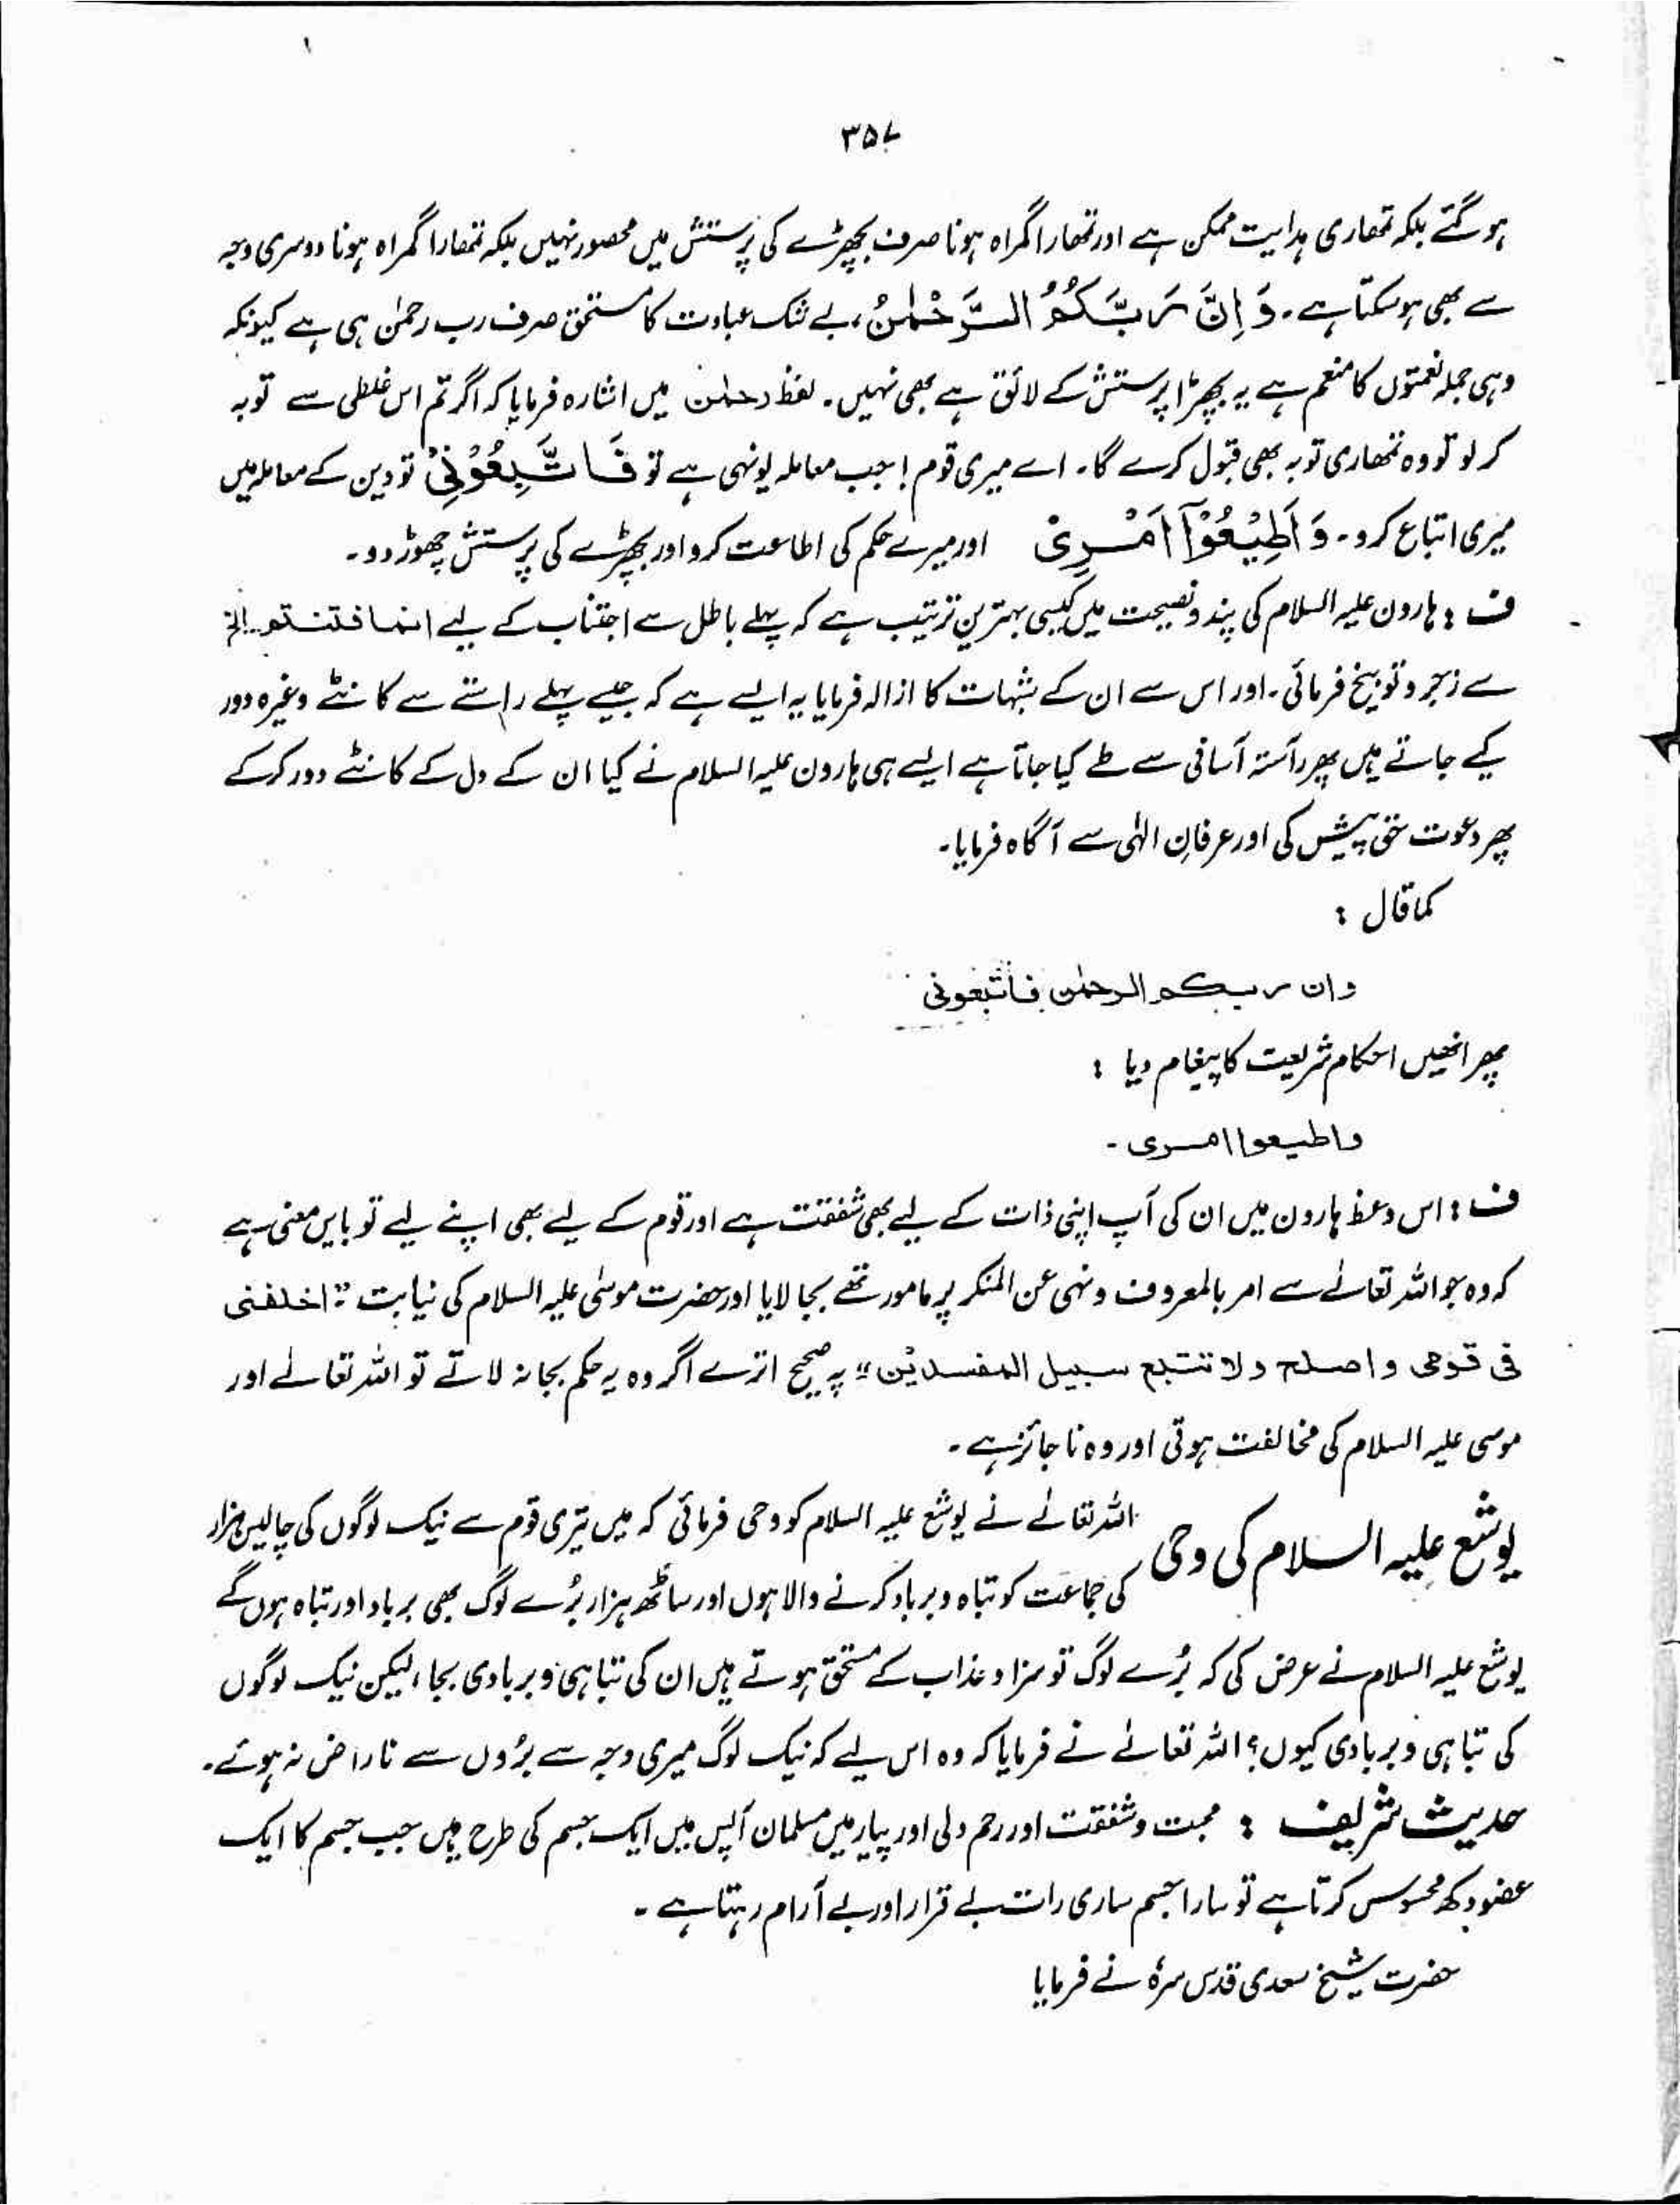 ۳۵۷
ہو گئے بلکہ تمھاری ہدایت ممکن ہے اور تمھارا گمراہ ہونا صرف بچھڑے کی پرستش میں محصور نہیں بلکہ تمھارا گمراہ ہونا دوسری وجہ
سے بھی ہو سکتا ہے۔ وَ اِنَّ رَبَّكُمُ الرَّحْمٰنُ، بے شک عبادت کا مستحق صرف رب رحمٰن ہی ہے کیونکہ
وہی جملہ نعمتوں کا منعم ہے یہ بچھڑا پرستش کے لائق ہے بھی نہیں۔ لفظ رحمٰن میں اشارہ فرمایا کہ اگر تم اس غلطی سے توبہ
کر لو تو وہ تمھاری توبہ بھی قبول کرے گا۔ اے میری قوم! جب معاملہ یونہی ہے تو فَاتَّبِعُوْنِیْ تو دین کے معاملہ میں
میری اتباع کرو۔ وَ اَطِیْعُوْٓا اَمْرِیْ اور میرے حکم کی اطاعت کرو اور بچھڑے کی پرستش چھوڑ دو۔
ف : ہارون علیہ السلام کی پند و نصیحت میں کیسی بہترین ترتیب ہے کہ پہلے باطل سے اجتناب کے لیے انما فتنتم الخ
سے زجر و توبیخ فرمائی۔ اور اس سے ان کے شبہات کا ازالہ فرمایا یہ ایسے ہے کہ جیسے پہلے راستے سے کانٹے وغیرہ دور
کیے جاتے ہیں پھر راستہ آسانی سے طے کیا جاتا ہے ایسے ہی ہارون علیہ السلام نے کیا ان کے دل کے کانٹے دور کر کے
پھر دعوت حق پیش کی اور عرفانِ الٰہی سے آگاہ فرمایا۔
کما قال :
وان ربکم الرحمٰن فاتبعونی
پھر انھیں احکام شریعت کا پیغام دیا :
واطیعوا امری۔
ف : اس وعظ ہارون میں ان کی آپ اپنی ذات کے لیے بھی شفقت ہے اور قوم کے لیے بھی اپنے لیے تو بایں معنی ہے
کہ وہ جو اللہ تعالےٰ سے امر بالمعروف و نہی عن المنکر پر مامور تھے بجا لایا اور حضرت موسٰی علیہ السلام کی نیابت "اخلفنی
فی قومی واصلح ولا تتبع سبیل المفسدین" پہ صحیح اترے اگر وہ یہ حکم بجا نہ لاتے تو اللہ تعالےٰ اور
موسی علیہ السلام کی مخالفت ہوتی اور وہ ناجائز ہے۔
یوشع علیہ السلام کی وحی
اللہ تعالےٰ نے یوشع علیہ السلام کو وحی فرمائی کہ میں تیری قوم سے نیک لوگوں کی چالیس ہزار
کی جماعت کو تباہ و برباد کرنے والا ہوں اور ساٹھ ہزار بُرے لوگ بھی برباد اور تباہ ہوں گے
یوشع علیہ السلام نے عرض کی کہ بُرے لوگ تو سزا و عذاب کے مستحق ہوتے ہیں ان کی تباہی و بربادی بجا، لیکن نیک لوگوں
کی تباہی و بربادی کیوں؟ اللہ تعالےٰ نے فرمایا کہ وہ اس لیے کہ نیک لوگ میری وجہ سے بُروں سے ناراض نہ ہوئے۔
حدیث شریف : محبت و شفقت اور رحم دلی اور پیار میں مسلمان آپس میں ایک جسم کی طرح ہیں جب جسم کا ایک
عضو دکھ محسوس کرتا ہے تو سارا جسم ساری رات بے قرار اور بے آرام رہتا ہے۔
حضرت شیخ سعدی قدس سرہٗ نے فرمایا